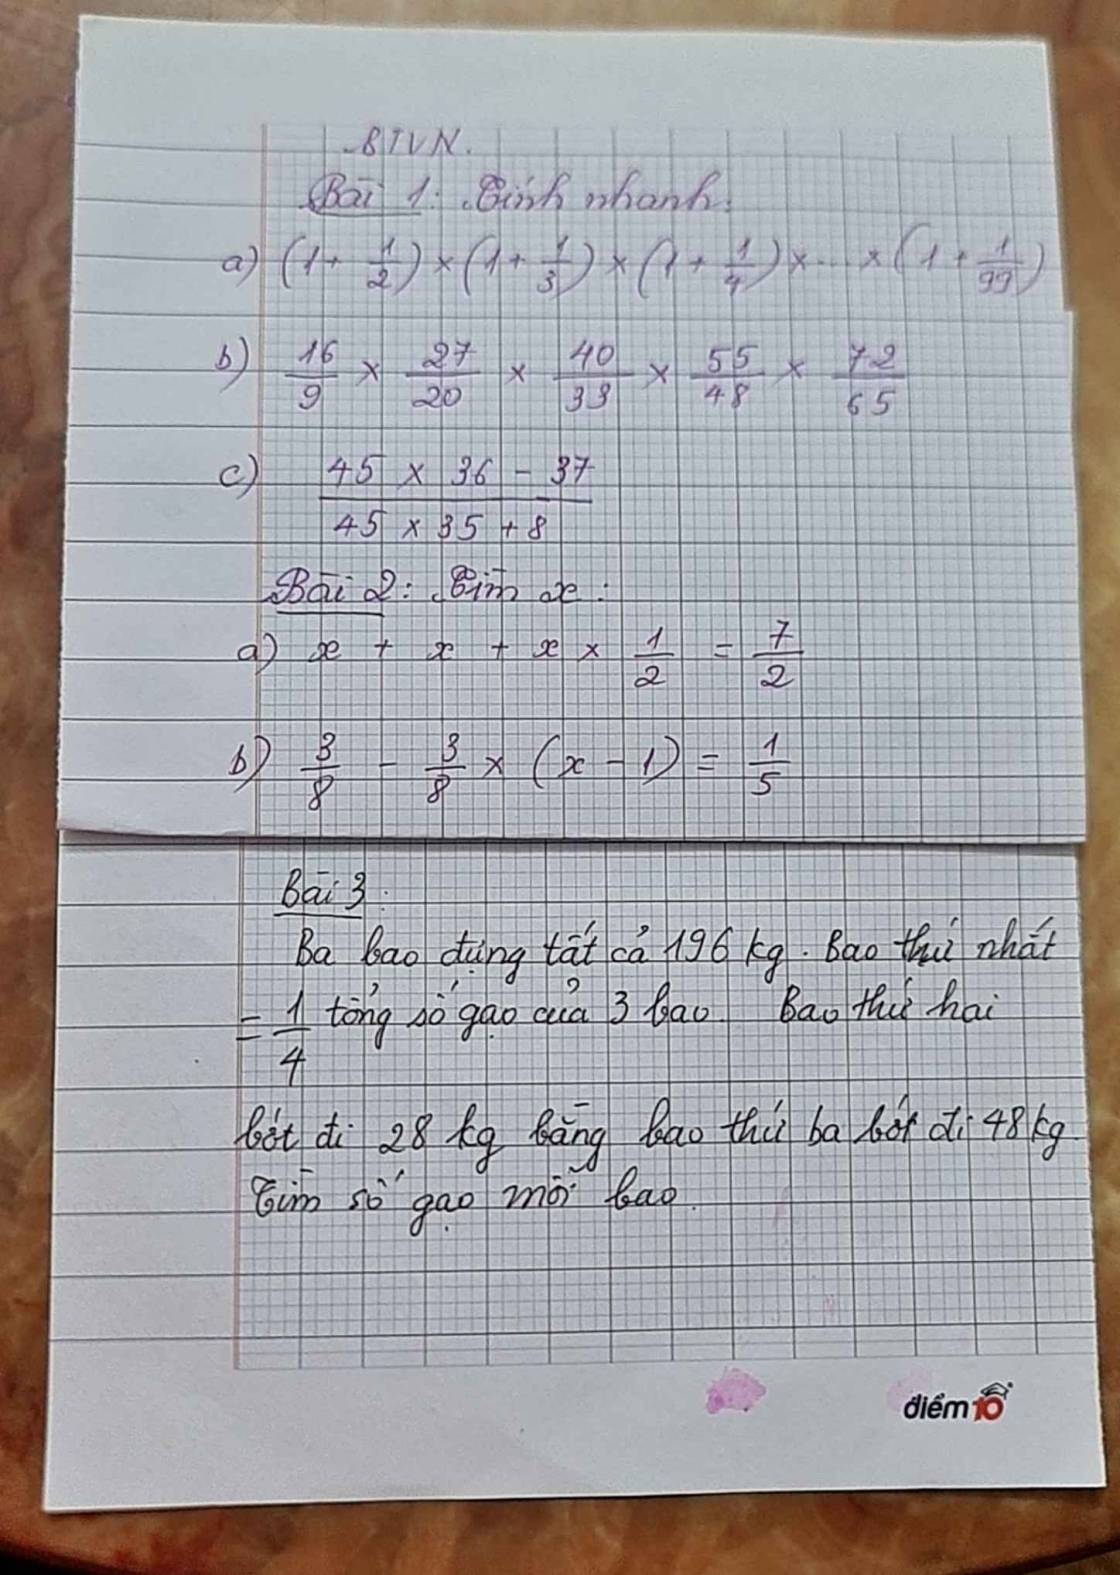 BTVN.
Bài 1: Tính nhanh:
a) (1 + 1/2) × (1 + 1/3) × (1 + 1/4) × ... × (1 + 1/99)
b) 16/9 × 27/20 × 40/33 × 55/48 × 72/65
c) 45 × 36 - 37
45 × 35 + 8
Bài 2: Tìm x:
a) x + x + x × 1/2 = 7/2
b) 3/8 - 3/8 × (x - 1) = 1/5
Bài 3:
Ba bao đựng tất cả 196 kg. Bao thứ nhất
= 1/4 tổng số gạo của 3 bao. Bao thứ hai
bớt đi 28 kg bằng bao thứ ba bớt đi 48 kg.
Tìm số gạo mỗi bao.
điểm 10